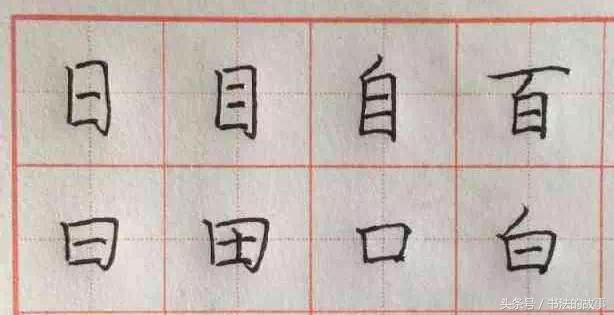 日目自百
曰田口白
头条号 / 书法的故事